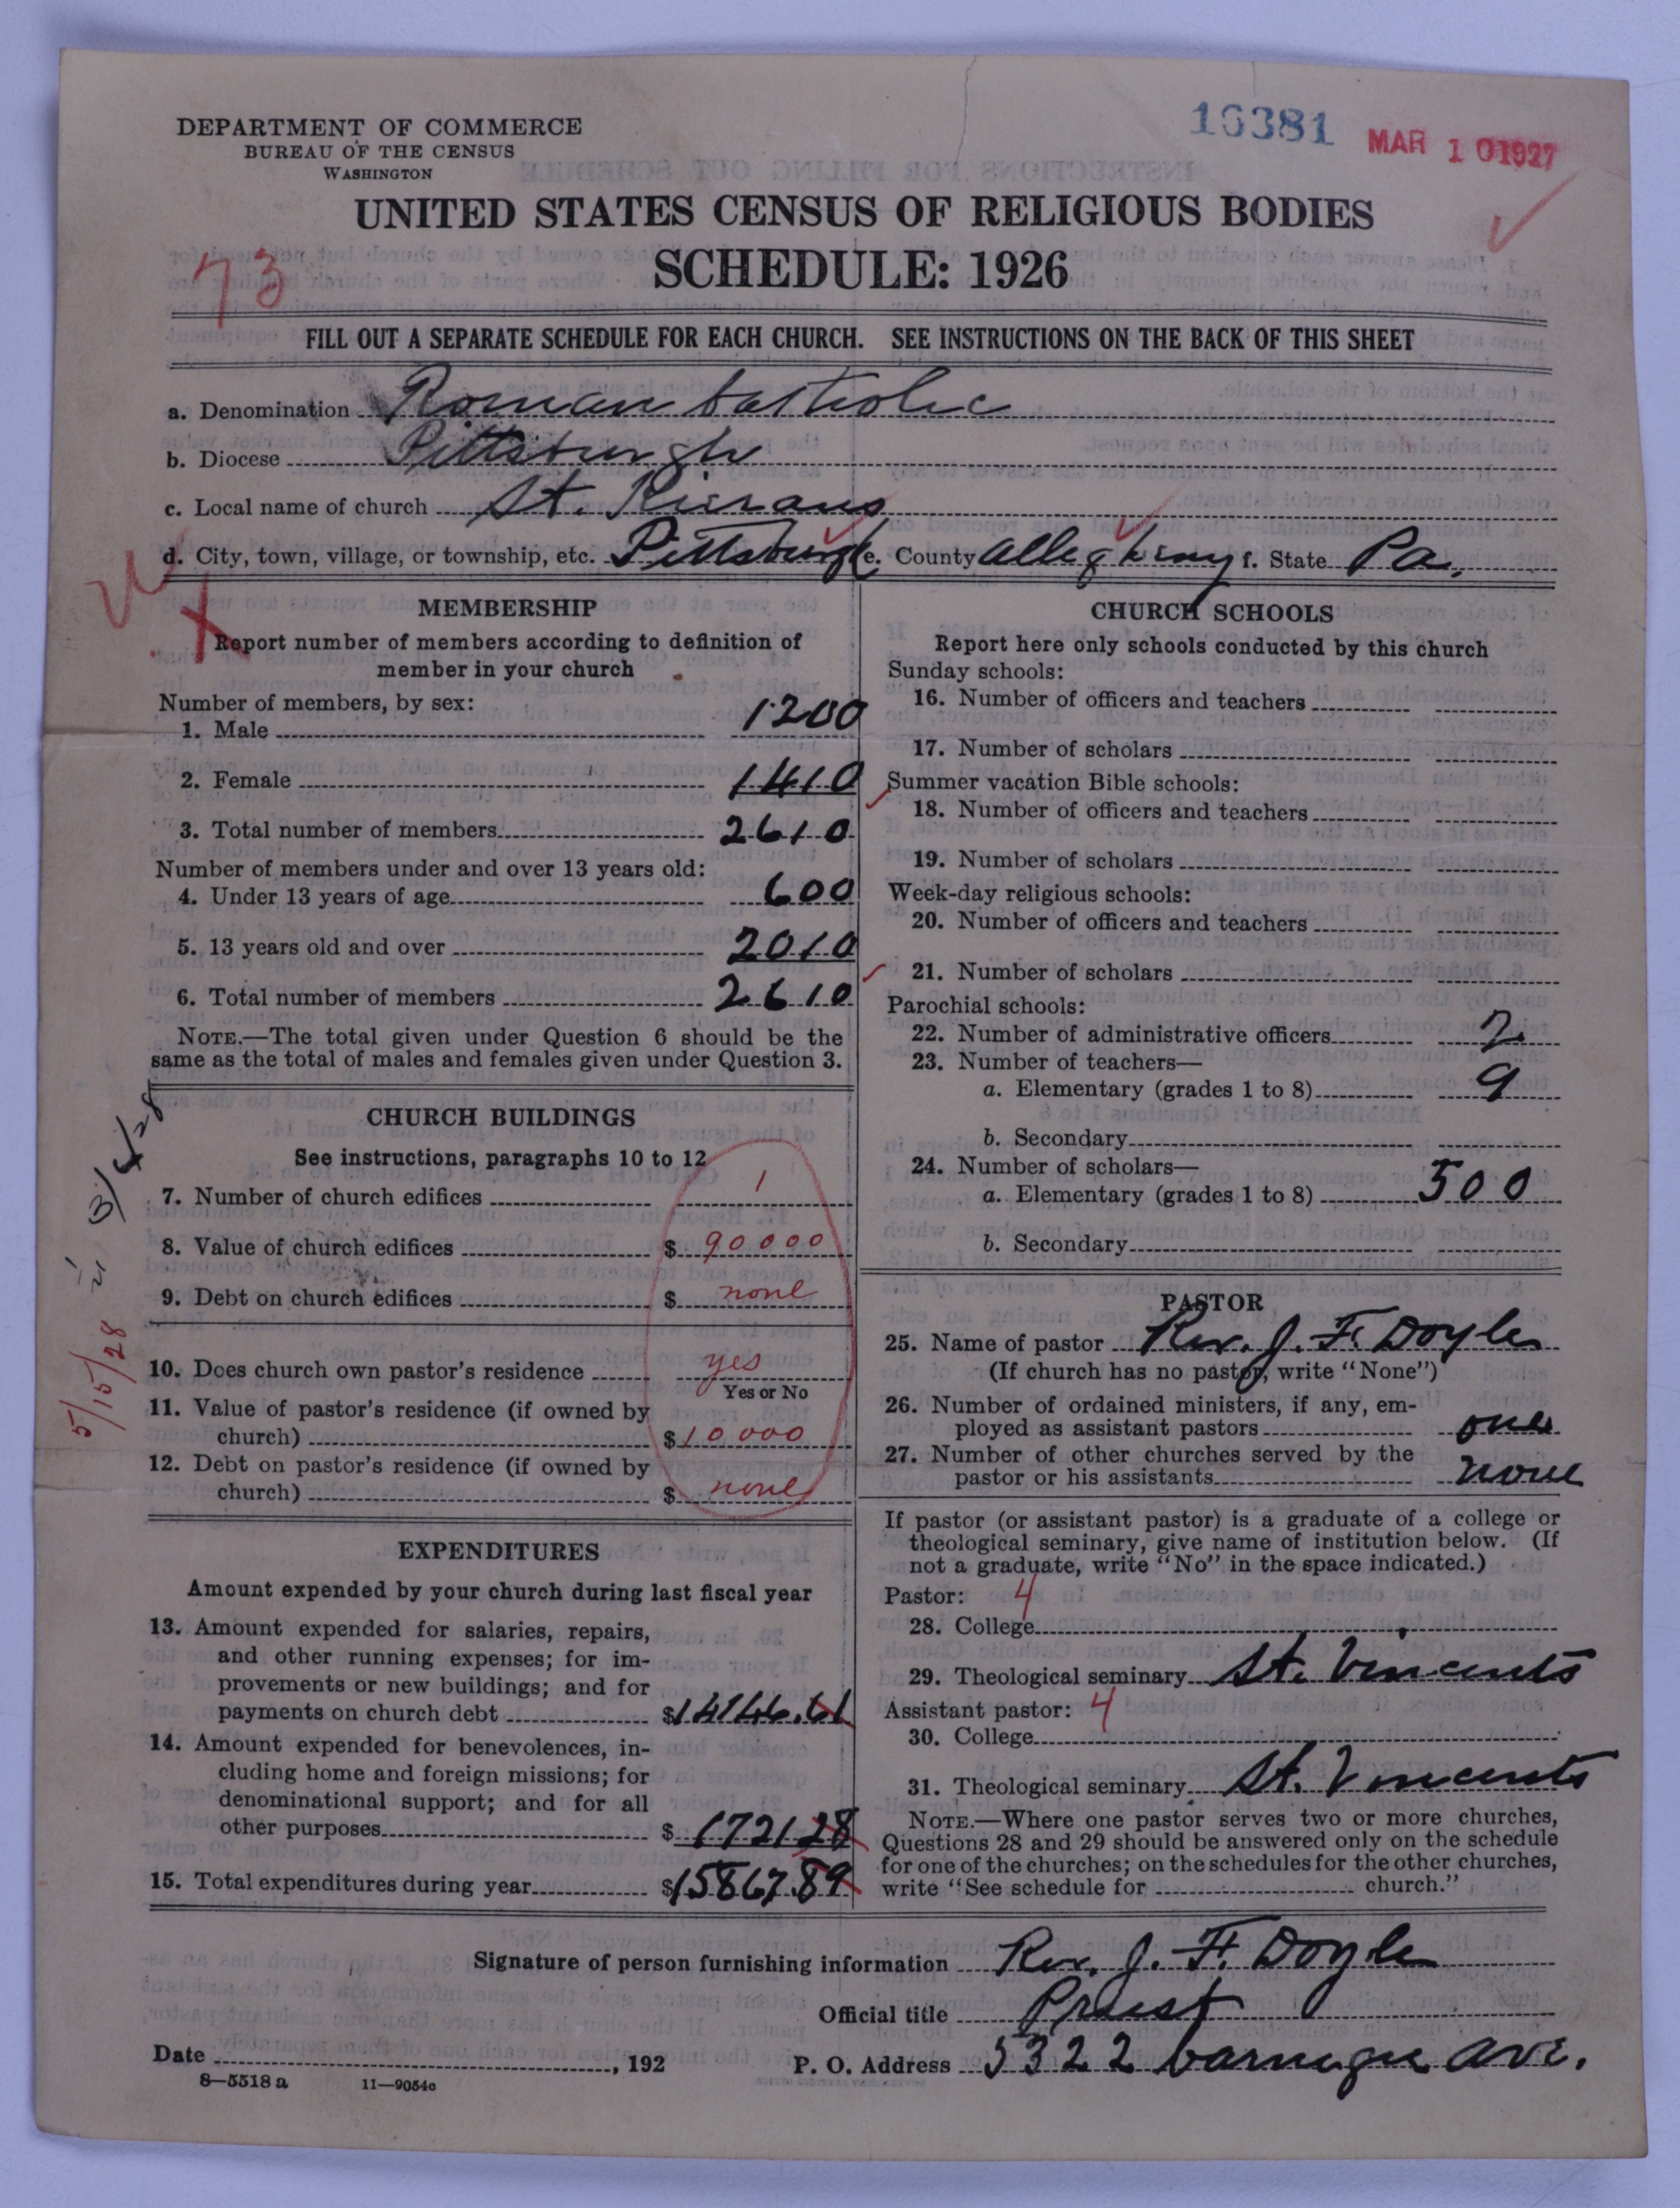 DEPARTMENT OF COMMERCE
BUREAU OF THE CENSUS
WASHINGTON
16381 MAR 10 1927
UNITED STATES CENSUS OF RELIGIOUS BODIES
SCHEDULE: 1926
73
FILL OUT A SEPARATE SCHEDULE FOR EACH CHURCH. SEE INSTRUCTIONS ON THE BACK OF THIS SHEET
a. Denomination Roman Catholic
b. Diocese Pittsburgh
c. Local name of church St. Kierans
d. City, town, village, or township, etc. Pittsburgh e. County Allegheny f. State Pa.
MEMBERSHIP
Report number of members according to definition of
member in your church
Number of members, by sex:
1. Male 1200
2. Female 1410
3. Total number of members 2610
Number of members under and over 13 years old:
4. Under 13 years of age 600
5. 13 years old and over 2010
6. Total number of members 2610
NOTE.—The total given under Question 6 should be the
same as the total of males and females given under Question 3.
CHURCH BUILDINGS
See instructions, paragraphs 10 to 12
7. Number of church edifices 1
8. Value of church edifices $ 90000
9. Debt on church edifices $ none
10. Does church own pastor's residence yes
Yes or No
11. Value of pastor's residence (if owned by
church) $ 10000
12. Debt on pastor's residence (if owned by
church) $ none
5/15/28
EXPENDITURES
Amount expended by your church during last fiscal year
13. Amount expended for salaries, repairs,
and other running expenses; for im-
provements or new buildings; and for
payments on church debt $14146.61
14. Amount expended for benevolences, in-
cluding home and foreign missions; for
denominational support; and for all
other purposes $ 1721 28
15. Total expenditures during year $15867.89
CHURCH SCHOOLS
Report here only schools conducted by this church
Sunday schools:
16. Number of officers and teachers
17. Number of scholars
Summer vacation Bible schools:
18. Number of officers and teachers
19. Number of scholars
Week-day religious schools:
20. Number of officers and teachers
21. Number of scholars
Parochial schools:
22. Number of administrative officers 2
23. Number of teachers—
a. Elementary (grades 1 to 8) 9
b. Secondary
24. Number of scholars—
a. Elementary (grades 1 to 8) 500
b. Secondary
PASTOR
25. Name of pastor Rev. J. F. Doyle
(If church has no pastor, write "None")
26. Number of ordained ministers, if any, em-
ployed as assistant pastors one
27. Number of other churches served by the
pastor or his assistants none
If pastor (or assistant pastor) is a graduate of a college or
theological seminary, give name of institution below. (If
not a graduate, write "No" in the space indicated.)
Pastor: 4
28. College
29. Theological seminary St. Vincents
Assistant pastor: 4
30. College
31. Theological seminary St. Vincents
NOTE.—Where one pastor serves two or more churches,
Questions 28 and 29 should be answered only on the schedule
for one of the churches; on the schedules for the other churches,
write "See schedule for church."
Signature of person furnishing information Rev. J. F. Doyle
Official title Priest
Date , 192 P. O. Address 5322 Carnegie Ave.
8—5518 a 11—9054c